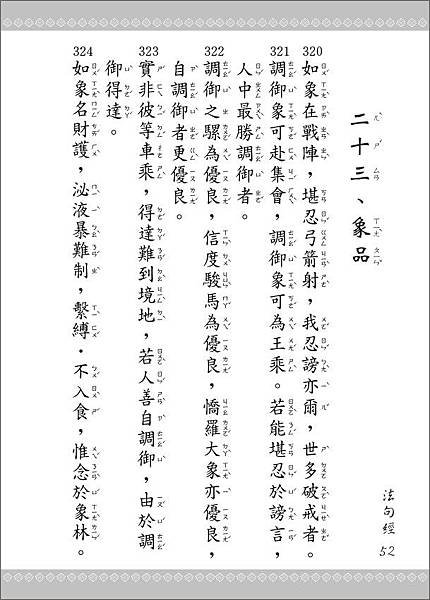 二十三、象品
320
如象在戰陣，堪忍弓箭射，我忍謗亦爾，世多破戒者。
321
調御象可赴集會，調御象可為王乘。若能堪忍於謗言，
人中最勝調御者。
322
調御之騾為優良，信度駿馬為優良，憍羅大象亦優良，
自調御者更優良。
323
實非彼等車乘，得達難到境地，若人善自調御，由於調
御得達。
324
如象名財護，泌液暴難制，繫縛．不入食，惟念於象林。
法句經 52